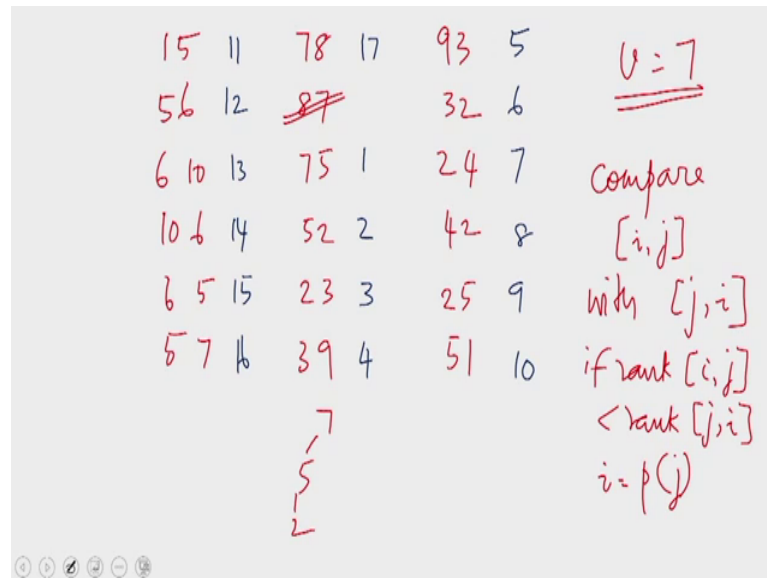 15 11 78 17 93 5
56 12 87 32 6
6 10 13 75 1 24 7
10 6 14 52 2 42 8
6 5 15 23 3 25 9
5 7 16 39 4 51 10
7
5
2
v = 7
compare
[i,j]
with [j,i]
if rank [i,j]
< rank [j,i]
i = p(j)